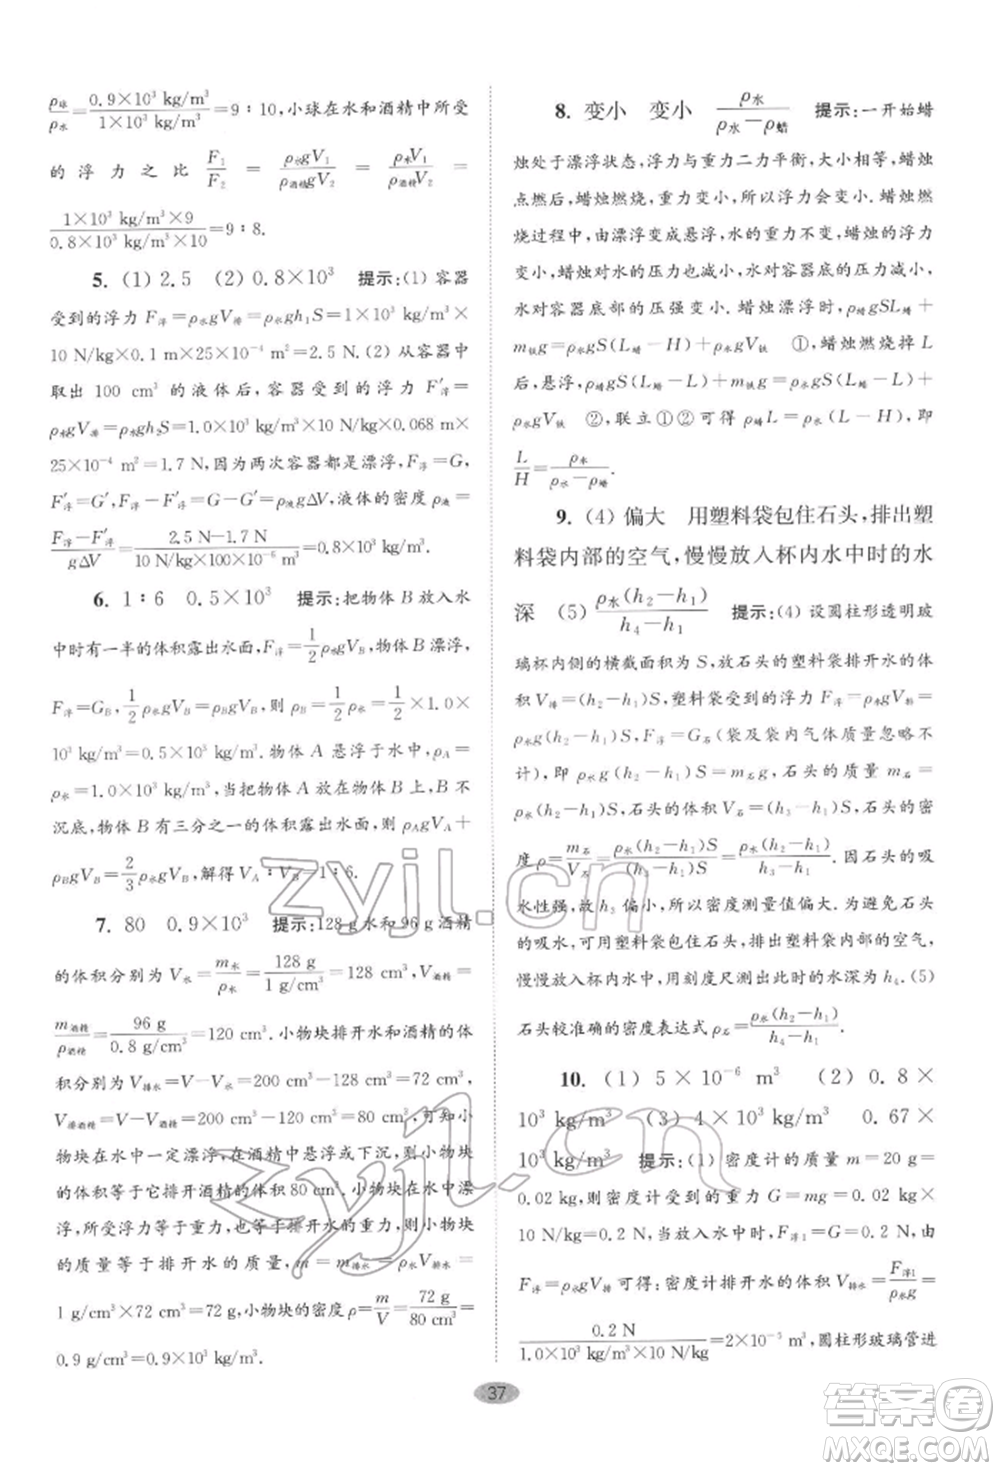 ρ球/ρ水=0.9×10³ kg/m³/1×10³ kg/m³=9∶10,小球在水和酒精中所受
的浮力之比 F₁/F₂ = ρ水gV₁/ρ酒精gV₂ = ρ水V₁/ρ酒精V₂ =
1×10³ kg/m³×9/0.8×10³ kg/m³×10=9∶8.
5. (1) 2.5 (2) 0.8×10³ 提示:(1) 容器
受到的浮力 F浮=ρ水gV排=ρ水gh₁S=1×10³ kg/m³×
10 N/kg×0.1 m×25×10⁻⁴ m²=2.5 N.(2) 从容器中
取出 100 cm³ 的液体后,容器受到的浮力 F′浮=
ρ水gV排=ρ水gh₂S=1.0×10³ kg/m³×10 N/kg×0.068 m×
25×10⁻⁴ m²=1.7 N,因为两次容器都是漂浮,F浮=G,
F′浮=G′,F浮-F′浮=G-G′=ρ液gΔV,液体的密度 ρ液=
F浮-F′浮/gΔV=2.5 N-1.7 N/10 N/kg×100×10⁻⁶ m³=0.8×10³ kg/m³.
6. 1∶6 0.5×10³ 提示:把物体 B 放入水
中时有一半的体积露出水面,F浮=1/2ρ水gVB,物体 B 漂浮,
F浮=GB,1/2ρ水gVB=ρBgVB,则 ρB=1/2ρ水=1/2×1.0×
10³ kg/m³=0.5×10³ kg/m³.物体 A 悬浮于水中,ρA=
ρ水=1.0×10³ kg/m³,当把物体 A 放在 B 上时,B 不
沉底,物体 B 有三分之一的体积露出水面,则 ρAgVA+
ρBgVB=2/3ρ水gVB,解得 VA∶VB=1∶6.
7. 80 0.9×10³ 提示:128 g 水和 96 g 酒精
的体积分别为 V水=m水/ρ水=128 g/1 g/cm³=128 cm³,V酒精=
m酒精/ρ酒精=96 g/0.8 g/cm³=120 cm³.小物块排开水和酒精的体
积分别为 V排水=V-V水=200 cm³-128 cm³=72 cm³,
V排酒精=V-V酒精=200 cm³-120 cm³=80 cm³,可知小
物块在水中一定漂浮,在酒精中悬浮或下沉,则小物块
的体积等于它排开酒精的体积 80 cm³.小物块在水中漂
浮,所受浮力等于重力,也等于排开水的重力,则小物块
的质量等于排开水的质量,m=m排水=ρ水V排水=
1 g/cm³×72 cm³=72 g,小物块的密度 ρ=m/V=72 g/80 cm³=
0.9 g/cm³=0.9×10³ kg/m³.
8. 变小 变小 ρ水/ρ水-ρ蜡 提示:一开始蜡
烛处于漂浮状态,浮力与重力二力平衡,大小相等,蜡烛
点燃后,蜡烛燃烧,重力变小,所以浮力会变小.蜡烛燃
烧过程中,由漂浮变成悬浮,水的重力不变,蜡烛的浮力
变小,蜡烛对水的压力也减小,水对容器底的压力变小,
水对容器底部的压强变小.蜡烛漂浮时,ρ蜡gSL蜡+
m铁g=ρ水gS(L蜡-H)+ρ水gV铁 ①,蜡烛燃烧掉 L
后,悬浮,ρ蜡gS(L蜡-L)+m铁g=ρ水gS(L蜡-L)+
ρ水gV铁 ②,联立①②可得 ρ蜡L=ρ水(L-H),即
L/H=ρ水/ρ水-ρ蜡.
9. (4) 偏大 用塑料袋包住石头,排出塑
料袋内部的空气,慢慢放入杯内水中时的水
深 (5) ρ水(h₂-h₁)/h₄-h₁ 提示:(4) 设圆柱形透明玻
璃杯内侧的横截面积为 S,放石头的塑料袋排开水的体
积 V排=(h₂-h₁)S,塑料袋受到的浮力 F浮=ρ水gV排=
ρ水g(h₂-h₁)S=G石(袋及袋内气体质量忽略不
计),即 ρ水g(h₂-h₁)S=m石g,石头的质量 m石=
ρ水(h₂-h₁)S,石头的体积 V石=(h₃-h₁)S,石头的密
度 ρ=m石/V石=ρ水(h₂-h₁)S/(h₃-h₁)S=ρ水(h₂-h₁)/h₃-h₁.因石头吸
水性强,故 h₃ 偏小,石头的密度测量值偏大.为避免石头
的吸水,可以用塑料袋包住石头,排出塑料袋内部的空气,
慢慢放入杯内水中,用刻度尺测出此时的水深为 h₄.(5)
石头较准确的密度表达式 ρ石=ρ水(h₂-h₁)/h₄-h₁.
10. (1) 5×10⁻⁶ m³ (2) 0.8×
10³ kg/m³ (3) 4×10³ kg/m³ 0.67×
10³ kg/m³ 提示:(1) 密度计的质量 m=20 g=
0.02 kg,则密度计受到的重力 G=mg=0.02 kg×
10 N/kg=0.2 N,当放入水中时,F浮₁=G=0.2 N,由
F浮=ρ水gV排 可得:密度计排开水的体积 V排水=F浮₁/ρ水g=
0.2 N/1.0×10³ kg/m³×10 N/kg=2×10⁻⁵ m³,圆柱形玻璃管进
37
zyjl.cn
zyjl.cn
答案圈
MXQE.COM